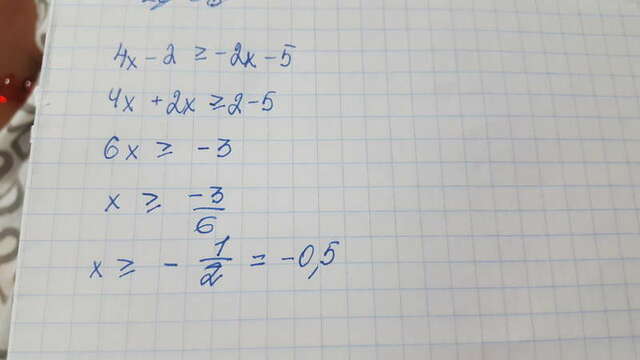 4x - 2 ≥ -2x - 5
4x + 2x ≥ 2 - 5
6x ≥ -3
x ≥ -3/6
x ≥ - 1/2 = -0,5